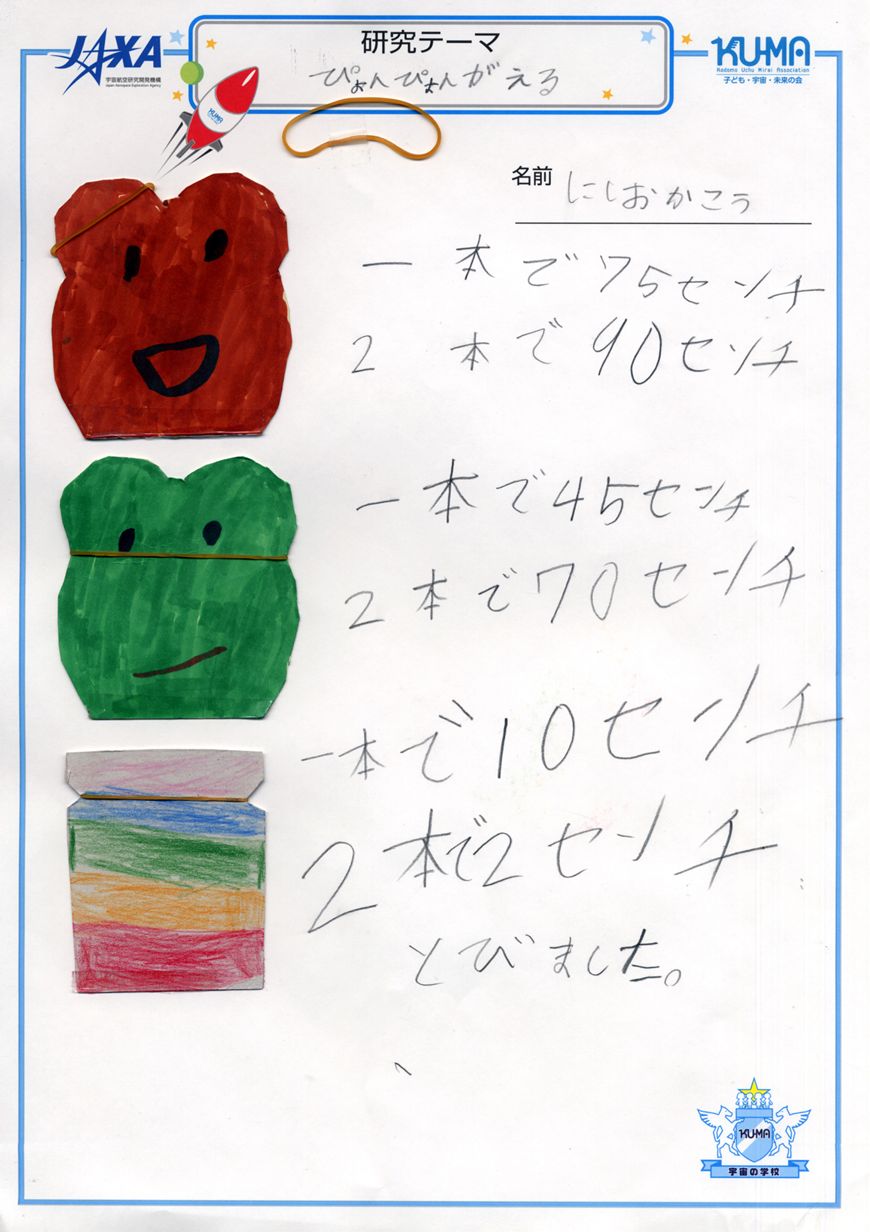 JAXA
宇宙航空研究開発機構
Japan Aerospace Exploration Agency
研究テーマ
ぴょんぴょんがえる
KU-MA
Kodomo Uchu Mirai Association
子ども・宇宙・未来の会
KU-MA
名前 にしおかこう
一本で75センチ
2本で90センチ
一本で45センチ
2本で70センチ
一本で10センチ
2本で2センチ
とびました。
KU-MA
宇宙の学校